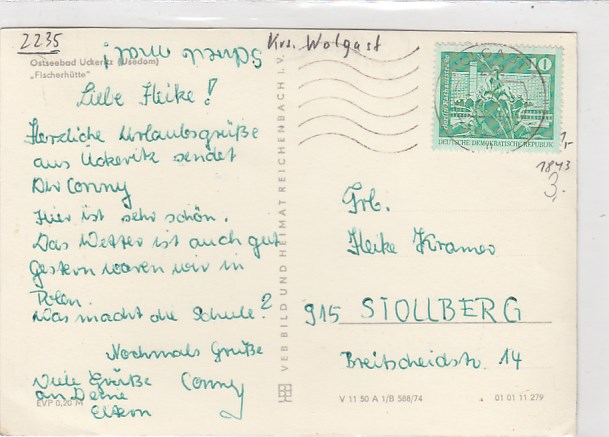 2235
Krs. Wolgast
Ostseebad Ückeritz (Usedom)
„Fischerhütte"
Schreib mal!
Liebe Heike!
Herzliche Urlaubsgrüße
aus Ückeritz sendet
Dir Conny
Hier ist sehr schön.
Das Wetter ist auch gut
Gestern waren wir in
Polen.
Was macht die Schule?
Nochmals Grüße
Conny
Viele Grüße
an Deine
Eltern
EVP 0,20 M
VEB BILD UND HEIMAT REICHENBACH I. V.
10
DEUTSCHE DEMOKRATISCHE REPUBLIK
1,-
1843
3,-
Frl.
Heike Kramer
915 STOLLBERG
Breitscheidstr. 14
V 11 50 A 1/B 588/74
01 01 11 279